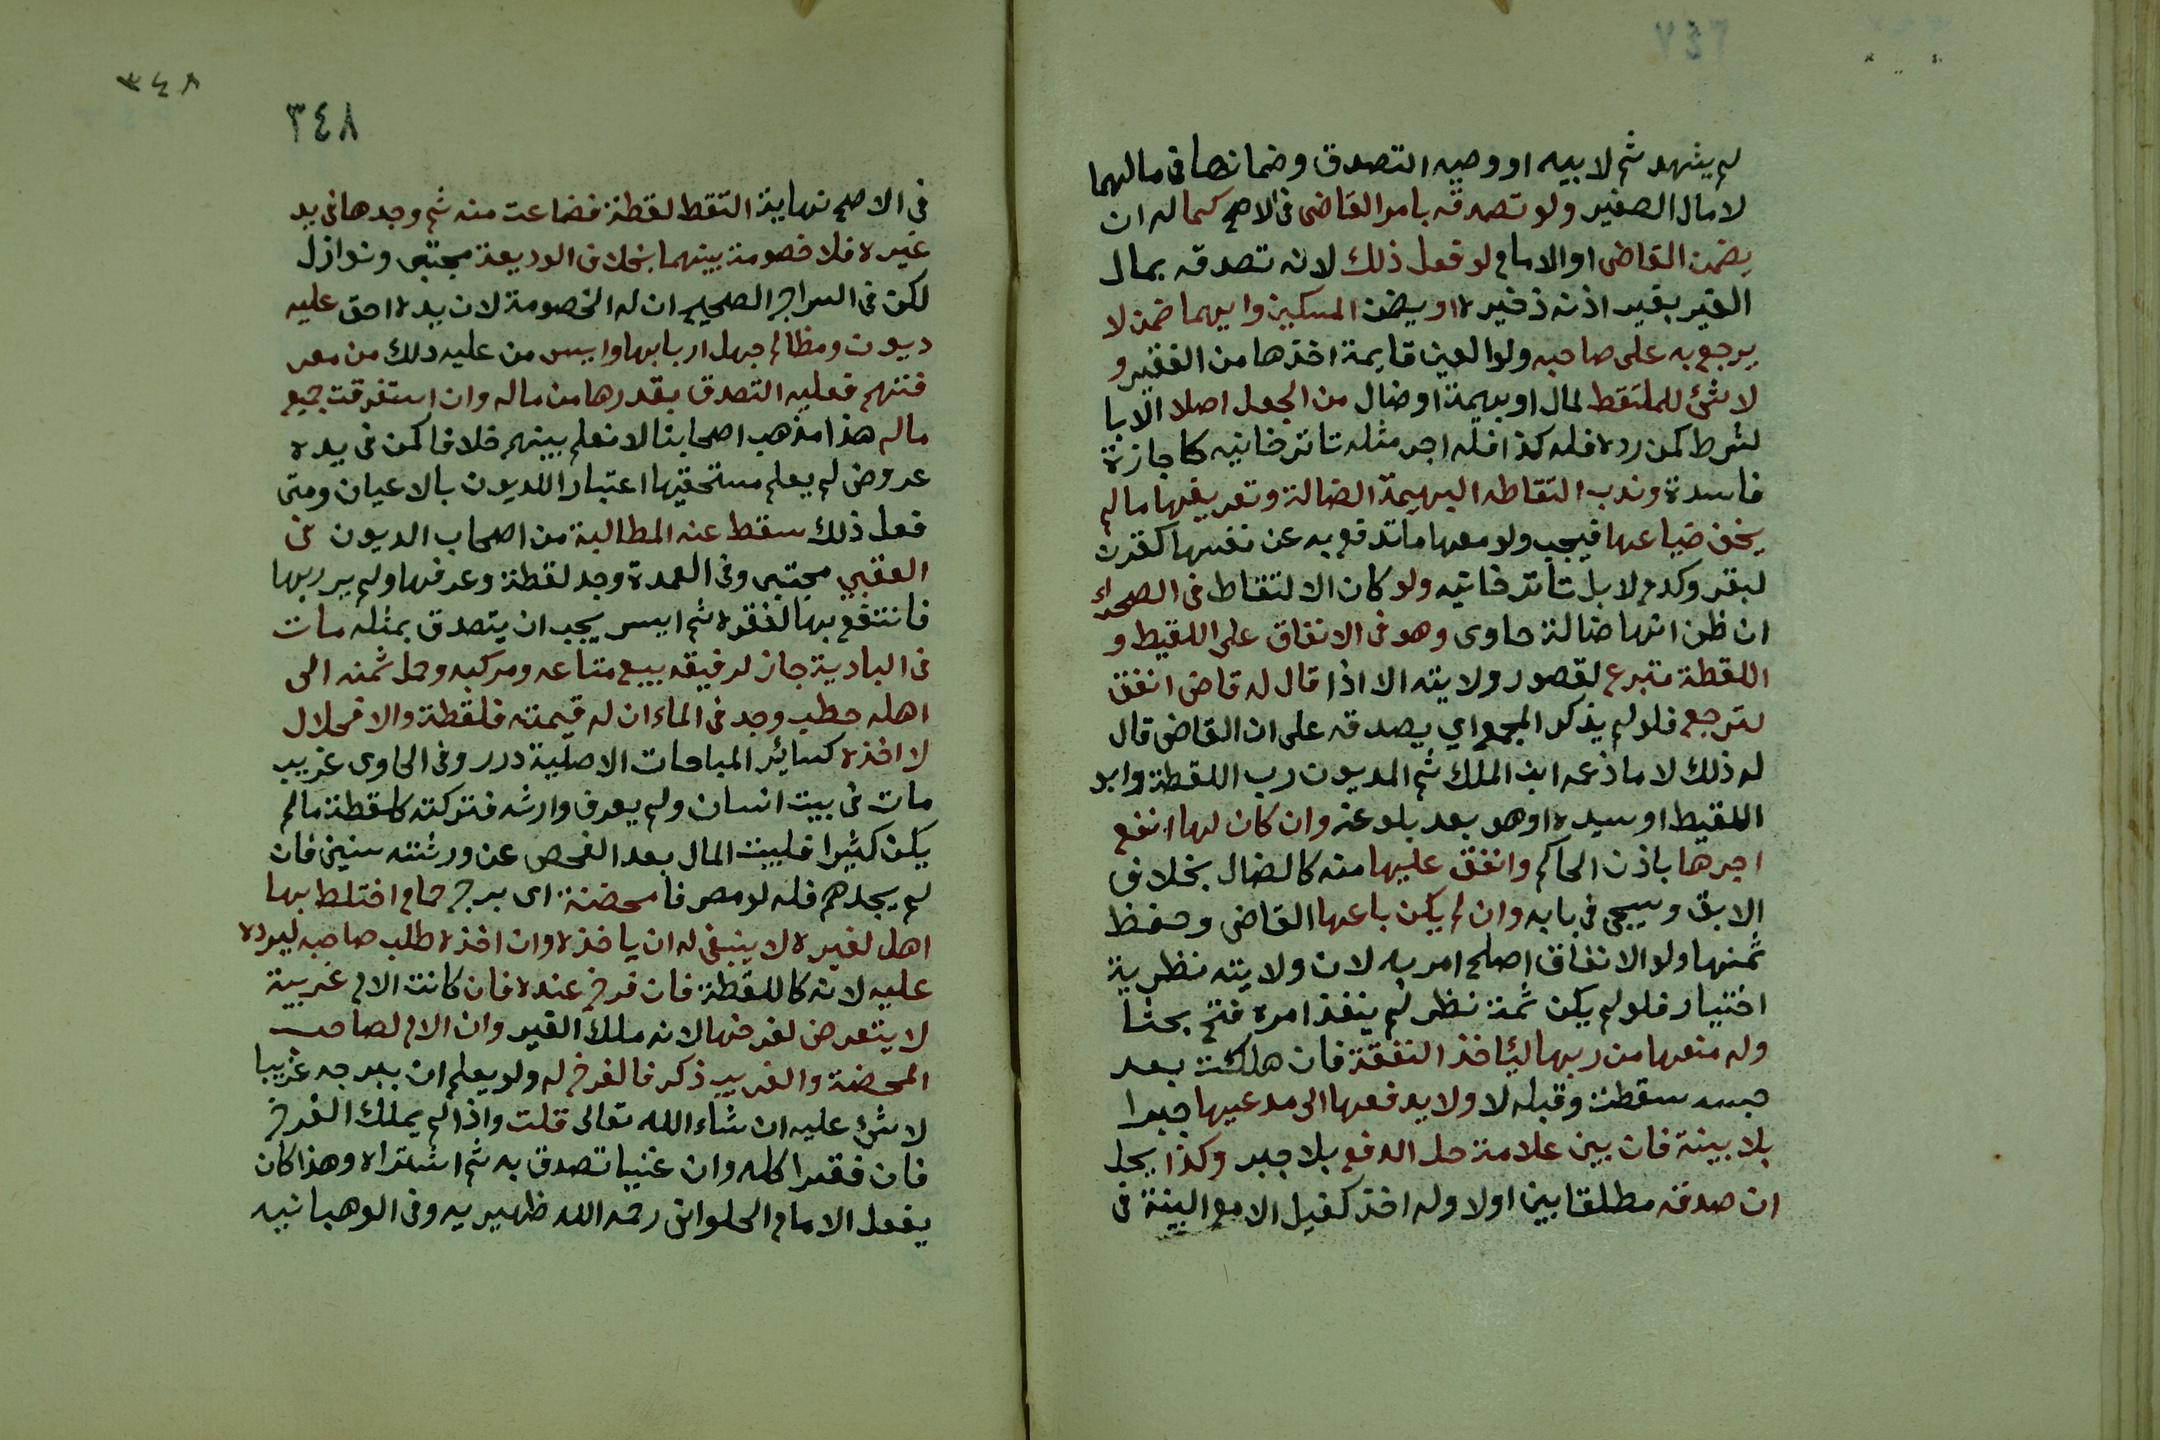 لم يشهد ثم لابيه او وصيه التصدق وضمانها فى مالهما
لا مال الصغير ولو تصدقه بامر القاضى فى الاصح كما له ان
يضمن القاضى او الامام لو فعل ذلك لانه تصدقه بمال
الغير بغير اذنه ذخيرة او يضمن المسكين وايهما ضمن لا
يرجع به على صاحبه ولو العين قايمة اخذها من الفقير و
لا شئ للملتقط لمال او بهيمة او ضال من الجعل اصلا الا با
لشرط كمن رده فله كذا فله اجر مثله تاترخانيه كاجازة
فاسدة وندب التقاطه البهيمة الضالة وتعريفها مالم
يخف ضياعها فيجب ولو معها ما تدفع به عن نفسها كقرن
لبقر وكدم لابل تاترخانيه ولو كان الالتقاط فى الصحراء
ان ظن انها ضالة حاوى وهو فى الانفاق على اللقيط و
اللقطة متبرع لقصور ولايته الا اذا قال له قاض انفق
لترجع فلو لم يذكر المجمع اي يصدقه على ان القاضى قال
له ذلك لا ما زعمه ابن الملك ثم المديون رب اللقطة وابو
اللقيط او سيده او هو بعد بلوغه وان كان لها انفع
اجرها باذن الحاكم وانفق عليها منه كالضال بخلاف
الابق وسيجى فى بابه وان لم يكن باعها القاضى وحفظ
ثمنها ولو الانفاق اصلح امر به لان ولايته نظرية
اختيار فلو لم يكن ثمة نظر لم ينفذ امره فتح بحثا
وله منعها من ربها ليأخذ النفقة فان هلكت بعد
حبسه سقطت وقبله لا ولا يدفعها الى مدعيها جبرا
بلا بينة فان بين علامة حل الدفع بلا جبر وكذا يحل
ان صدقه مطلقا بين اولا وله اخذ كفيل الا مع البينة فى
٣٤٨
٣٤٨
فى الاصح نهاية التقط لقطة فضاعت منه ثم وجدها فى يد
غيره فلا خصومة بينهما بخلاف الوديعة مجتبى ونوازل
لكن فى السراج الصحيح ان له الخصومة لان يده احق عليه
ديون ومظالم جهل اربابها وايس من عليه ذلك من معر
فتهم فعليه التصدق بقدرها من ماله وان استغرقت جميع
ماله هذا مذهب اصحابنا لا نعلم بينهم خلافا كمن فى يده
عروض لم يعلم مستحقيها اعتبارا للديون بالاعيان ومتى
فعل ذلك سقط عنه المطالبة من اصحاب الديون فى
العقبي مجتبى وفى العمدة وجد لقطة وعرفها ولم ير ربها
فانتفع بها لفقره ثم ايسر يجب ان يتصدق بمثله مات
فى البادية جاز لرفيقه بيع متاعه ومركبه وحمل ثمنه الى
اهله حطب وجد فى الماء ان له قيمته فلقطة والا فحلال
لاخذه كسائر المباحات الاصلية درر وفى الحاوى غريب
مات فى بيت انسان ولم يعرف وارثه فتركته كلقطة مالم
يكن كثيرا فلبيت المال بعد الفحص عن ورثته سنين فان
لم يجدهم فله لو مصرفا محضنة اى برج حمام اختلط بها
اهل لغيره لا ينبغى له ان ياخذه وان اخذه طلب صاحبه ليرده
عليه لانه كاللقطة فان فرخ عنده فان كانت الام غريبة
لا يتعرض لفرخها لانه ملك الغير وان الام لصاحب
المحضنة والغريب ذكر فالفرخ له ولو يعلم ان ببرجه غريبا
لا شئ عليه ان شاء الله تعالى قلت واذا لم يملك الفرخ
فان فقيرا كله وان غنيا تصدق به ثم اشتراه وهذا كان
يفعل الامام الحلوانى رحمه الله ظهيريه وفى الوهبانيه